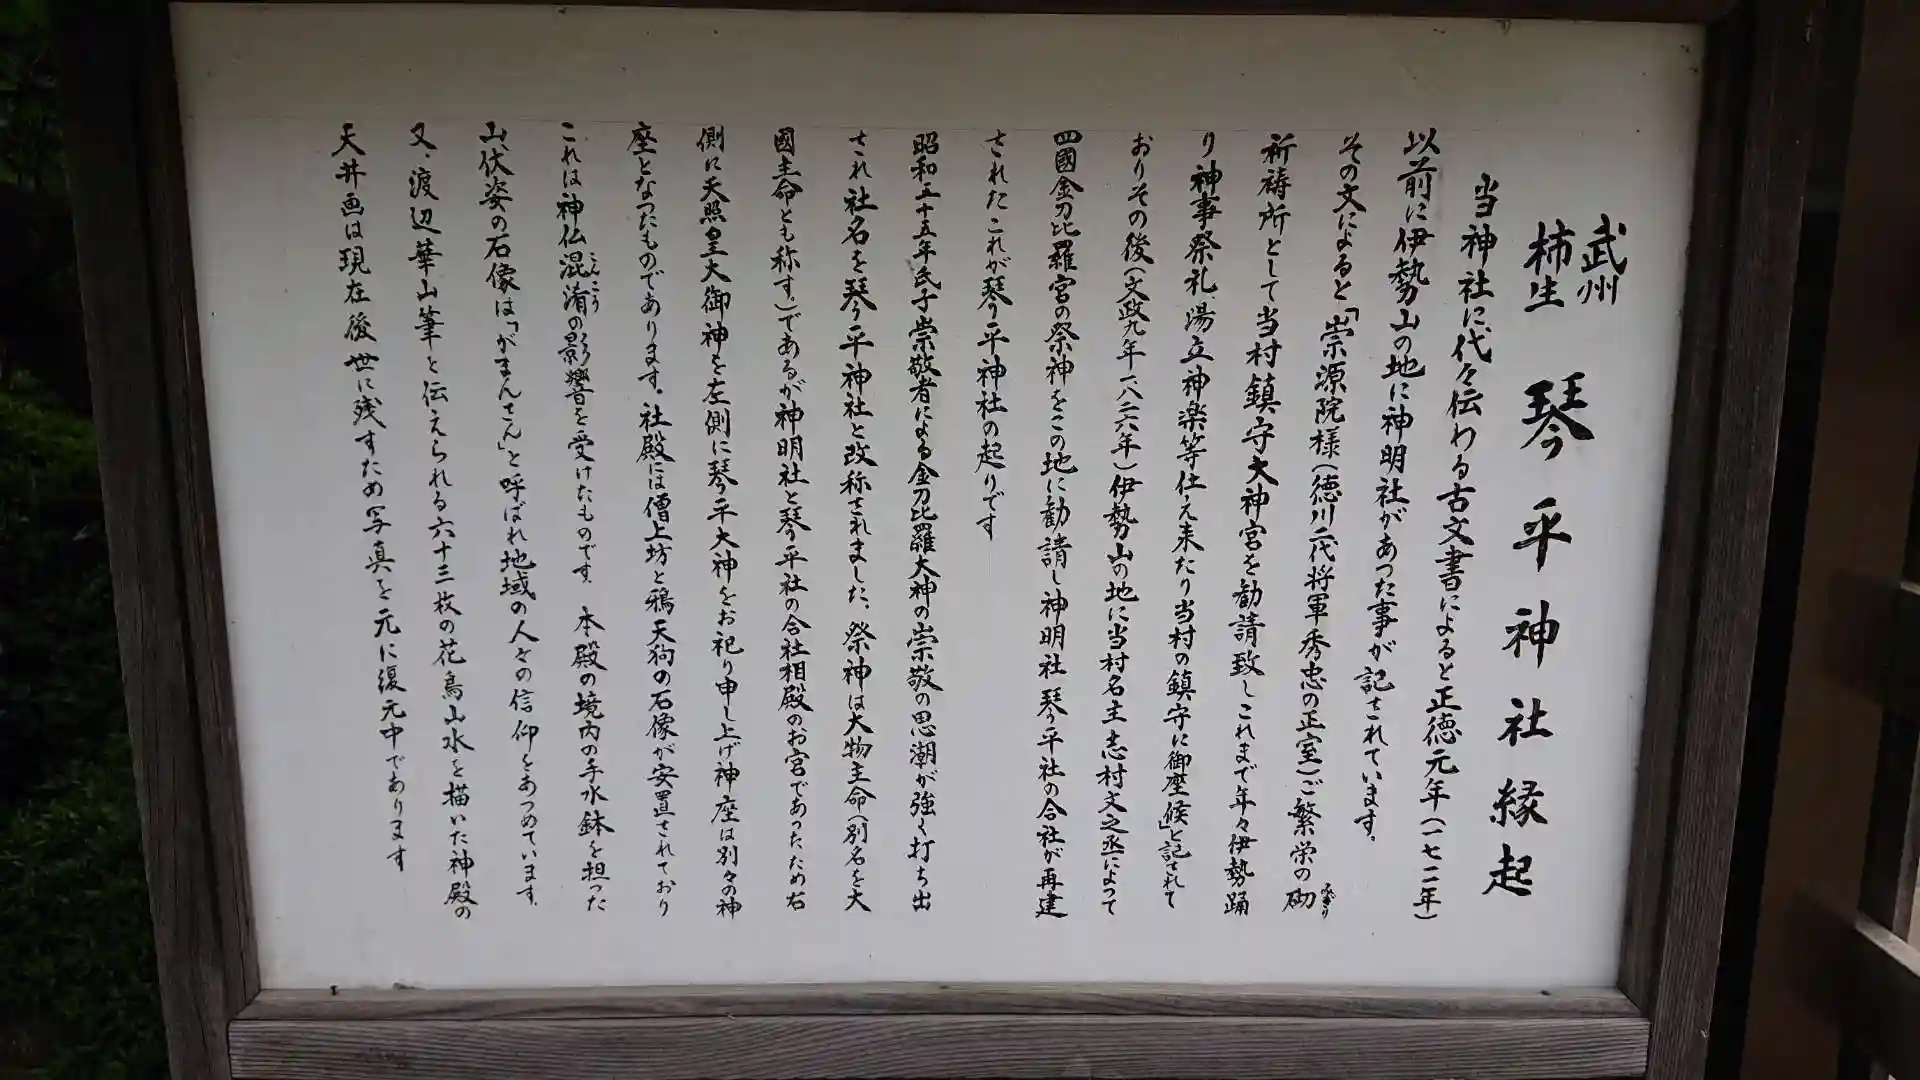 武州
柿生
琴平神社縁起
当神社に代々伝わる古文書によると正徳元年(一七一一年)
以前に伊勢山の地に神明社があった事が記されています。
その文によると「崇源院様(徳川二代将軍秀忠の正室)ご繁栄の砌
みぎり
祈祷所として当村鎮守大神宮を勧請致しこれまで年々伊勢踊
り神事祭礼、湯立神楽等仕え来たり当村の鎮守に御座候」と記されて
おりその後(文政九年一八二六年)伊勢山の地に当村名主志村文之丞によって
四國金刀比羅宮の祭神をこの地に勧請し神明社琴平社の合社が再建
されたこれが琴平神社の起りです
昭和五十五年氏子崇敬者による金刀比羅大神の崇敬の思潮が強く打ち出
され社名を琴平神社と改称されました、祭神は大物主命(別名を大
國主命とも称す)であるが神明社と琴平社の合社相殿のお宮であったため右
側に天照皇大御神を左側に琴平大神をお祀り申し上げ神座は別々の神
座となったものであります。社殿には僧上坊と鴉天狗の石像が安置されており
これは神仏混淆の影響を受けたものです。本殿の境内の手水鉢を担った
こんこう
山伏姿の石像は「がまんさん」と呼ばれ地域の人々の信仰をあつめています。
又、渡辺華山筆と伝えられる六十三枚の花鳥山水を描いた神殿の
天井画は現在後世に残すため写真を元に復元中であります